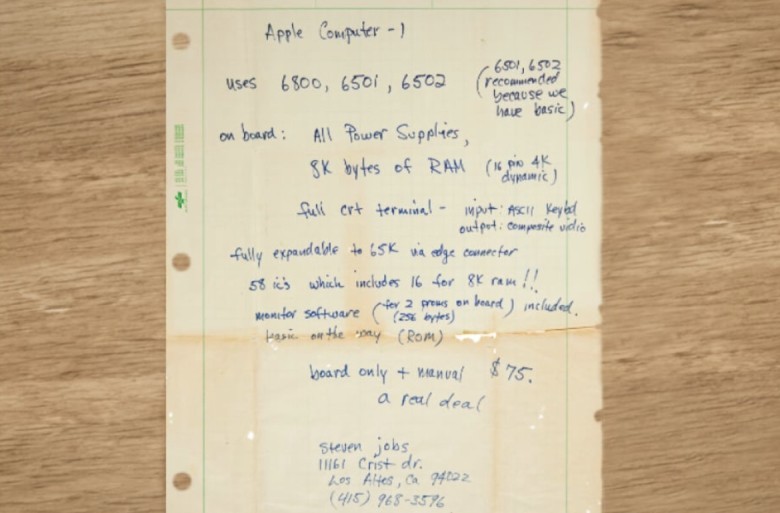 Apple Computer - 1
uses 6800, 6501, 6502 (6501, 6502
recommended
because we
have basic)
on board: All Power Supplies,
8K bytes of RAM (16 pin 4K
dynamic)
full crt terminal - input: ASCII Keybd
output: composite vidio
fully expandable to 65K via edge connector
58 ic's which includes 16 for 8K ram!!
monitor software (for 2 proms on board) included.
(256 bytes)
basic on the way (ROM)
board only + manual $75.
a real deal
Steven jobs
11161 Crist dr.
Los Altos, Ca 94022
(415) 968-3596